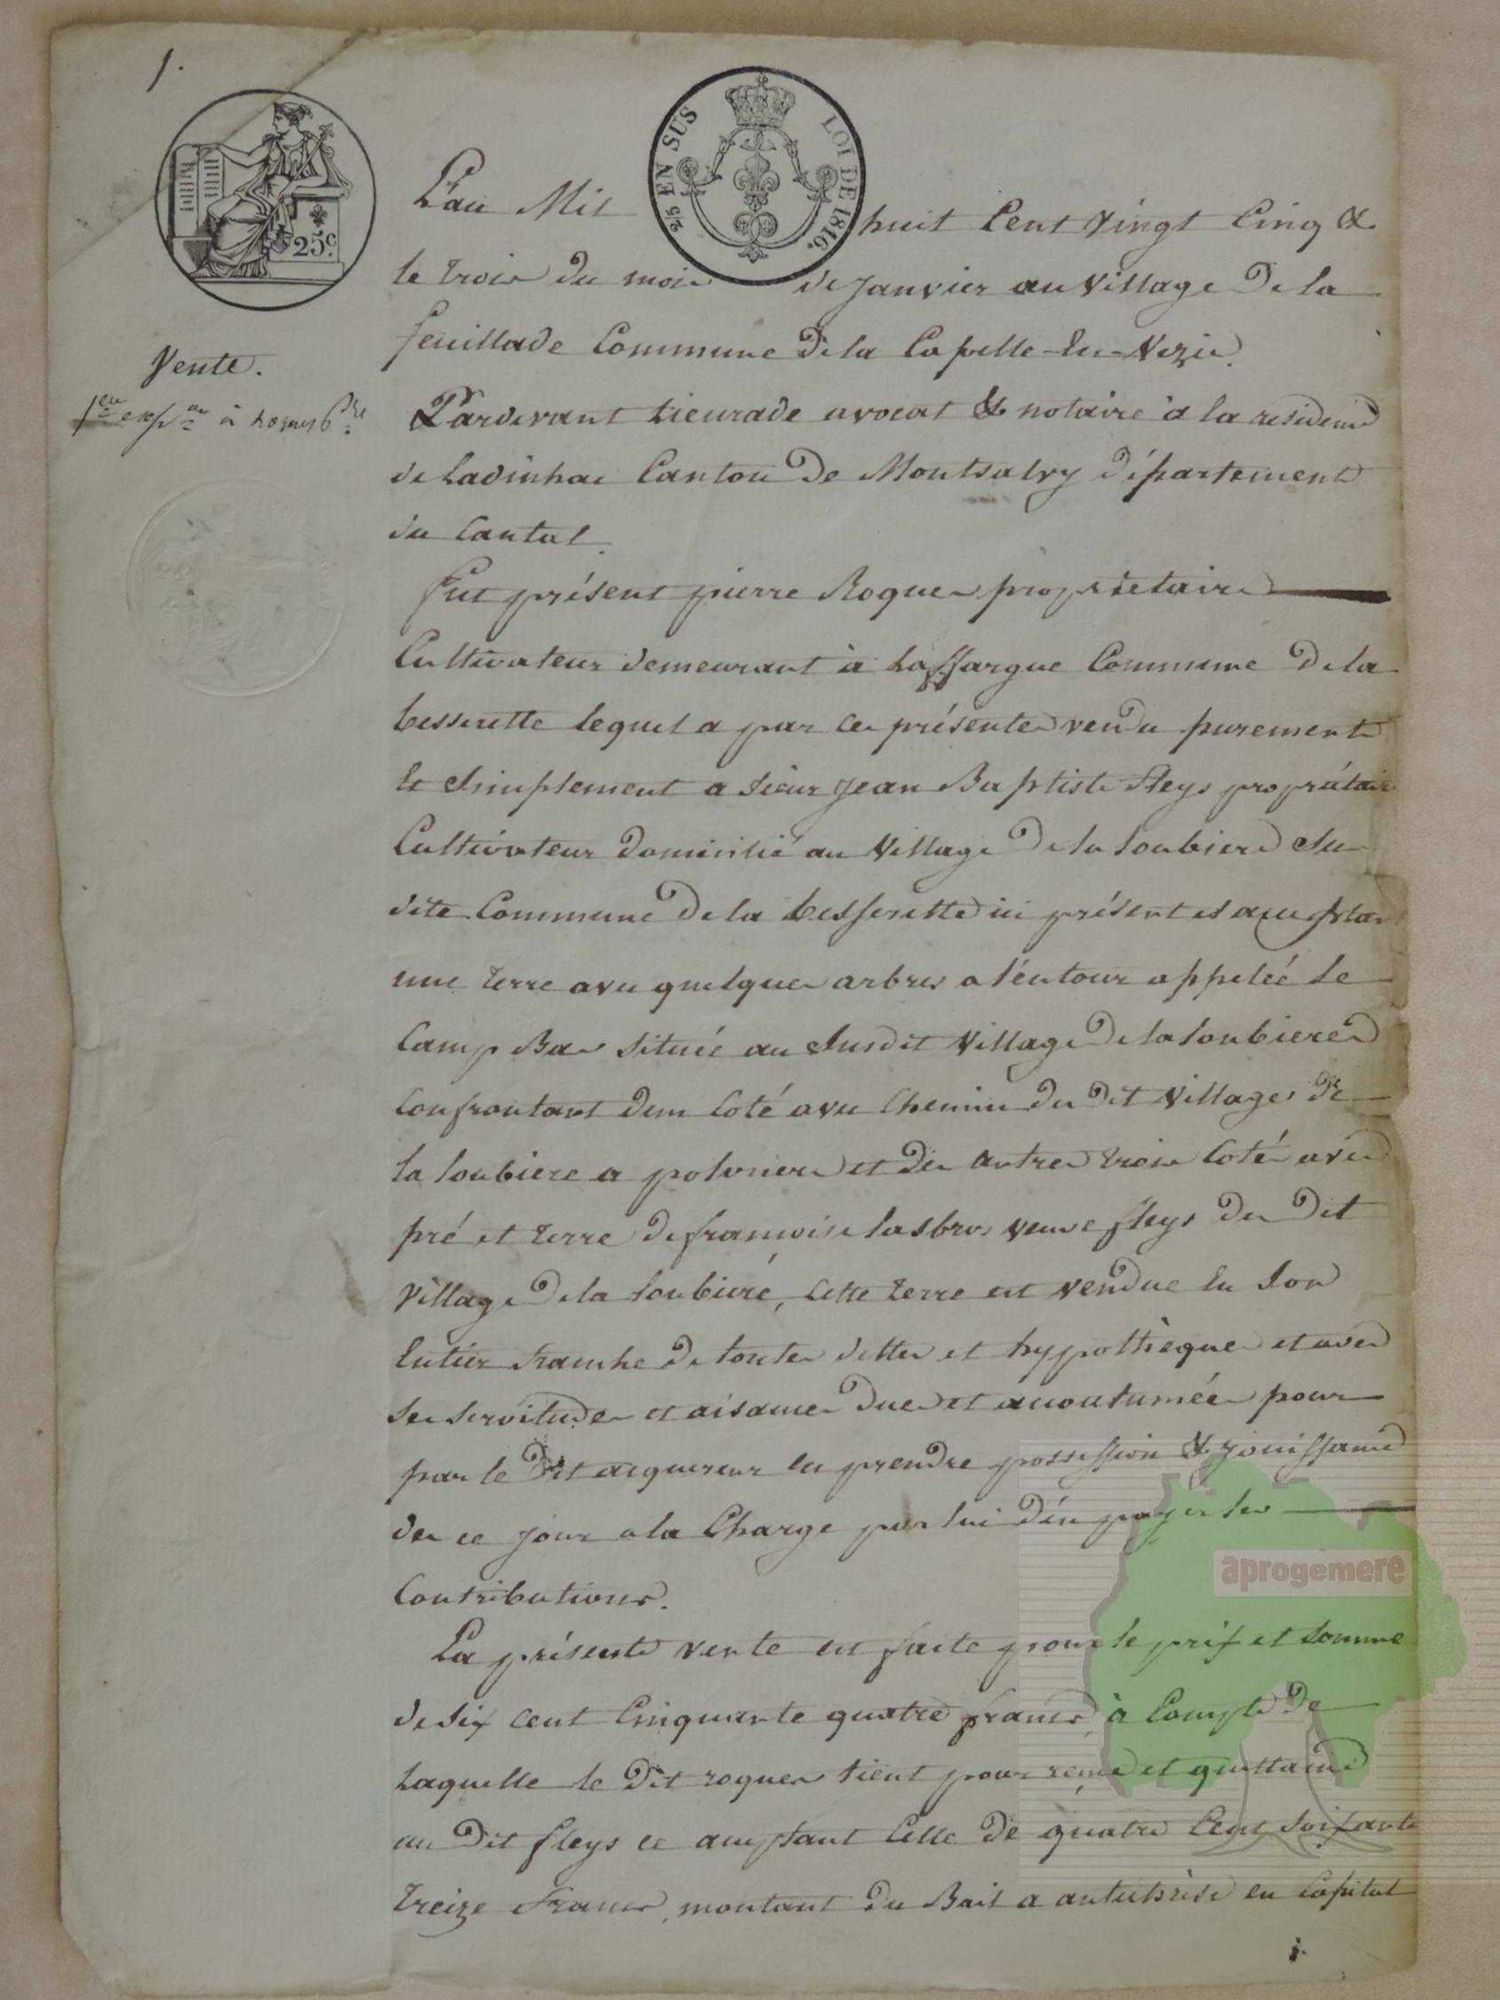 1.
25 EN SUS
LOI DE 1816.
25c.
L'an Mil huit Cent vingt Cinq &
le trois du mois de janvier au village De la
feuillade Commune De la Capelle-En-Vezie.
Vente.
1ere expon à
Pardevant Lieurade avocat & notaire à la residence
de Ladinhac Canton De Montsalvy département
du Cantal.
Fut présent pierre Roques proprietaire
Cultivateur demeurant à Laffargue Commune De la
besserette lequel a par ces présentes vendu purement
Et Simplement a sieur jean Baptiste fleys propriétaire
Cultivateur domicilié au village De la loubiere Su
dite Commune De la besserette ici présent et acceptant
une terre avec quelques arbres a l'entour appeleé le
Camp Bas située au Susdit village De la loubiere
confrontant d'un Coté avec Chemin du Dit village De
la loubiere a polvrieres et des autres trois Cotés avec
pré et terre De françoise lasbros veuve fleys du Dit
village De la loubiere, cette terre est vendue En Son
Entier franche De toutes dettes et hypothèques et avec
Ses servitudes et aisances Dues et accoutumées pour
par le Dit acquereur en prendre possession & jouissance
des ce jour a la Charge par lui D'en payer les
Contributions.
La présente vente est faite pour le prix et somme
de six cent Cinquante quatre francs, à Compte De
laquelle le Dit roques tient pour reçue et quittance
au Dit fleys ce acceptant Celle De quatre Cent soixante
treize francs, montant du Bail a antichrèse en Capital
aprogemere